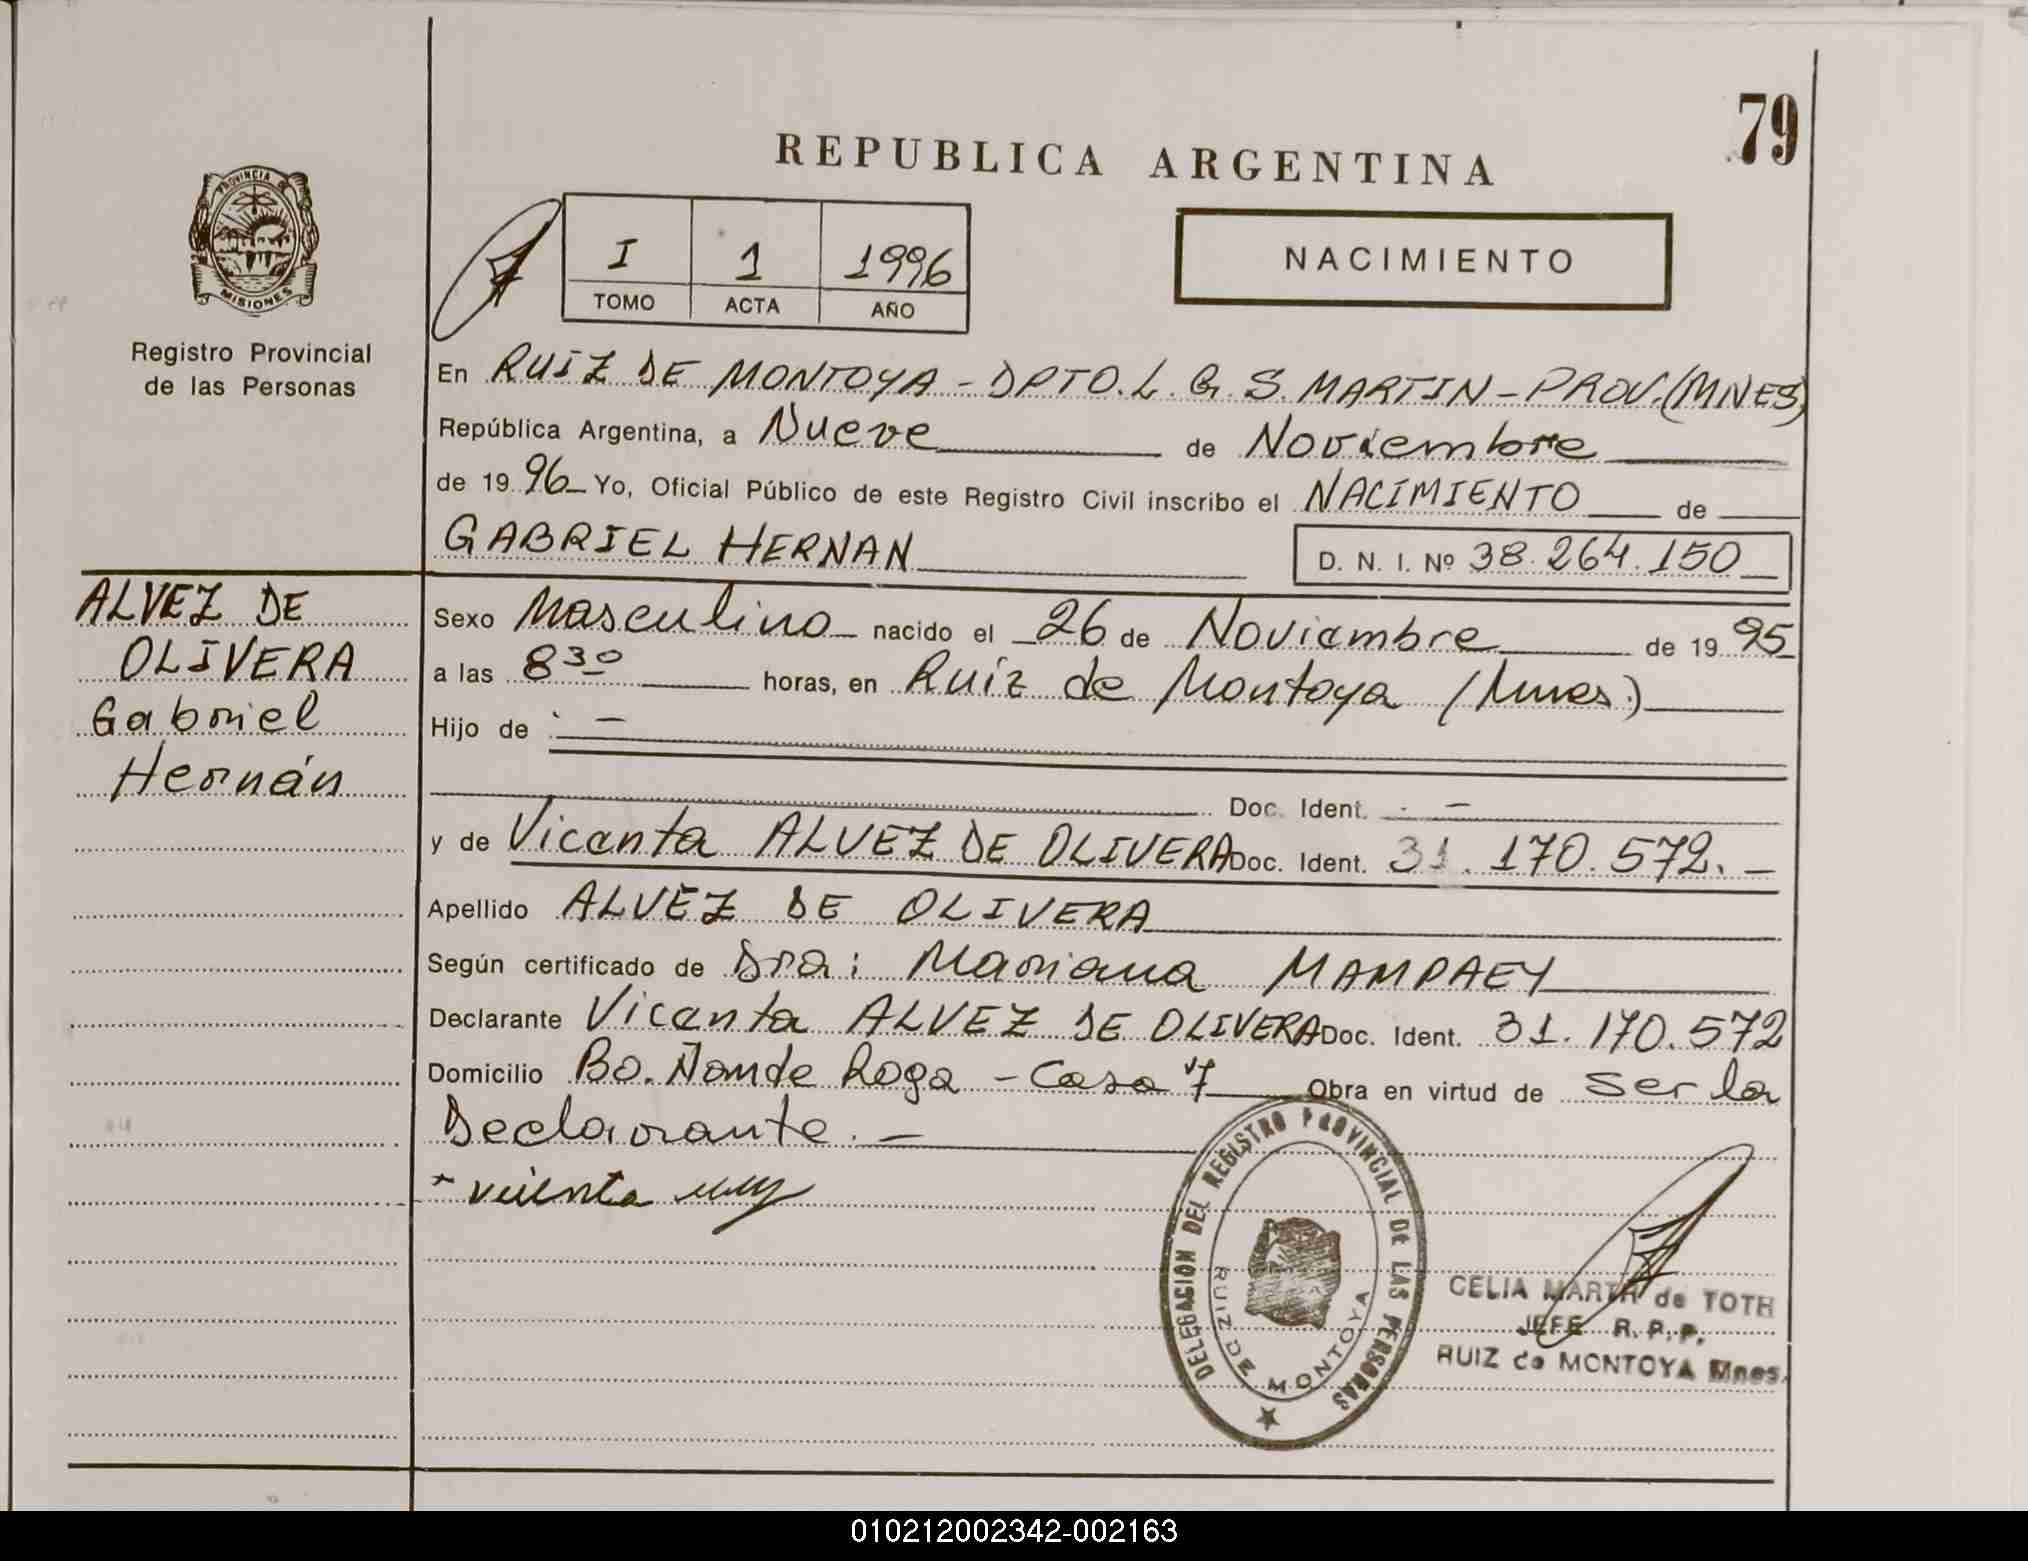 79
REPUBLICA ARGENTINA
PROVINCIA DE
MISIONES
Registro Provincial
de las Personas
I 1 1996
TOMO ACTA AÑO
NACIMIENTO
En RUIZ DE MONTOYA - DPTO. L. G. S. MARTIN - PROV. (MNES)
República Argentina, a Nueve de Noviembre
de 1996 Yo, Oficial Público de este Registro Civil inscribo el NACIMIENTO de
GABRIEL HERNAN D. N. I. Nº 38.264.150
ALVEZ DE
OLIVERA
Gabriel
Hernán
Sexo Masculino nacido el 26 de Noviembre de 1995
a las 8 30 horas, en Ruiz de Montoya (Mnes.)
Hijo de -
Doc. Ident. -
y de Vicenta ALVEZ DE OLIVERA Doc. Ident. 31.170.572.-
Apellido ALVEZ DE OLIVERA
Según certificado de Dra: Mariana MAMPAEY
Declarante Vicenta ALVEZ DE OLIVERA Doc. Ident. 31.170.572
Domicilio Bo. Ñande Roga - Casa 7 Obra en virtud de ser la
Declarante. -
DELEGACION DEL REGISTRO PROVINCIAL DE LAS PERSONAS
RUIZ DE MONTOYA
CELIA de TOTH
JEFE R. P. P.
RUIZ de MONTOYA Mnes.
010212002342-002163